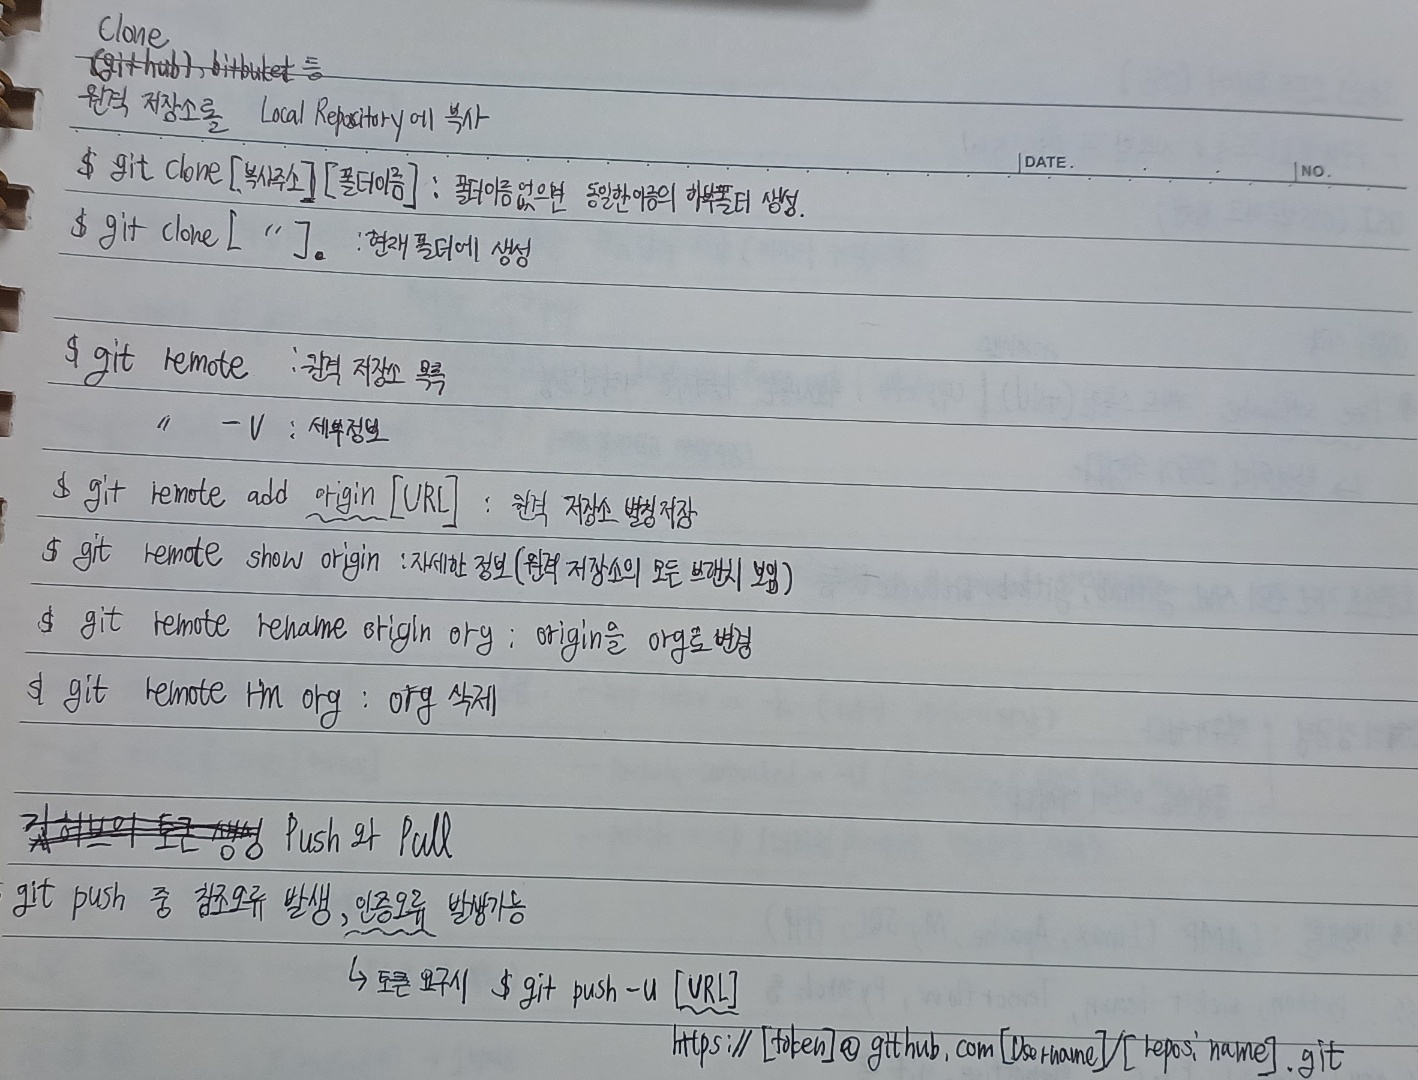 Clone
(github), bitbuket 등
원격 저장소를 Local Repository에 복사
DATE. NO.
$ git clone [복사주소] [폴더이름] : 폴더이름 없으면 동일한 이름의 하부폴더 생성.
$ git clone [ 〃 ]. : 현재 폴더에 생성
$ git remote : 원격 저장소 목록
〃 -v : 세부정보
$ git remote add origin [URL] : 원격 저장소 별칭 저장
$ git remote show origin : 자세한 정보 (원격 저장소의 모든 브랜치 보임)
$ git remote rename origin org : origin을 org로 변경
$ git remote rm org : org 삭제
깃허브의 토큰 생성 Push 와 Pull
git push 중 참조오류 발생, 인증오류 발생가능
↳ 토큰 요구시 $ git push -u [URL]
https:// [token]@github.com [Username]/[reposi name].git